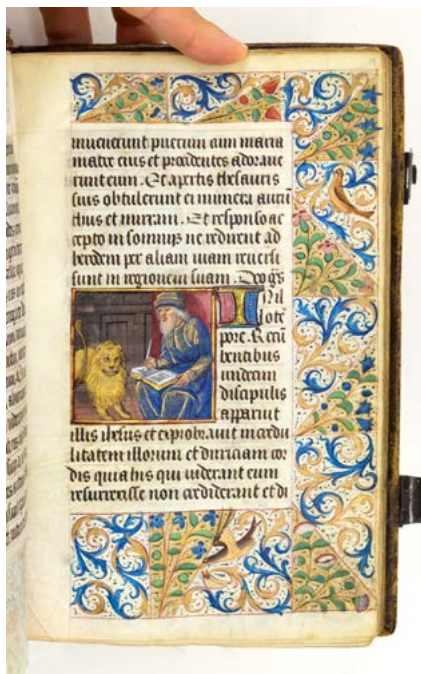 inuenerunt puerum cum maria
matre eius et procidentes adoraue
runt eum. Et apertis thesauris
suis obtulerunt ei munera aurū
thus et mirram. Et responso ac
cepto in somnijs ne redirent ad
herodem per aliam uiam reuersi
sunt in regionem suam. Deo gr̄s
IN il
lo tē
pore. Recū
bentibus
undecim
discipulis
apparuit
illis ihesus et exprobrauit incredu
litatem illorum et duriciam cor
dis quia his qui uiderant eum
resurrexisse non crediderant et di